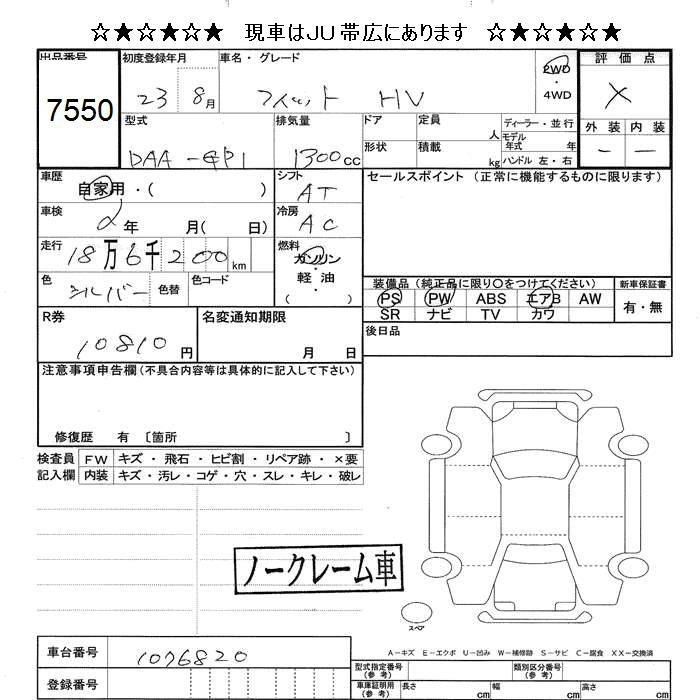 ☆★☆★☆★ 現車はJU帯広にあります ☆★☆★☆★
出品番号 初度登録年月 車名・グレード 評価点
7550 23 8月 フィット HV 2WD・4WD X
型式 排気量 ドア 定員 人 ディーラー・並行 外装 内装
DAA-GP1 1300cc 形状 積載 kg モデル年式 年 ハンドル 左・右 - -
車歴 自家用・( ) シフト AT セールスポイント (正常に機能するものに限ります)
車検 2年 月( 日) 冷房 AC
走行 18万6千200km 燃料 ガソリン・軽・油・( )
色 シルバー 色替 色コード
装備品 (純正品に限り○をつけてください) 新車保証書
PS PW ABS エアB AW 有・無
SR ナビ TV カワ
R券 10810円 名変通知期限 月 日 後日品
注意事項申告欄(不具合内容等は具体的に記入して下さい)
修復歴 有 〔箇所 〕
検査員 FW キズ・飛石・ヒビ割・リペア跡・×要
記入欄 内装 キズ・汚レ・コゲ・穴・スレ・キレ・破レ
ノークレーム車
スペア
A-キズ E-エクボ U-凹み W-補修跡 S-サビ C-腐食 XX-交換済
車台番号 1076820 型式指定番号(参考) 類別区分番号(参考)
登録番号 車庫証明用(参考) 長さ cm 幅 cm 高さ cm